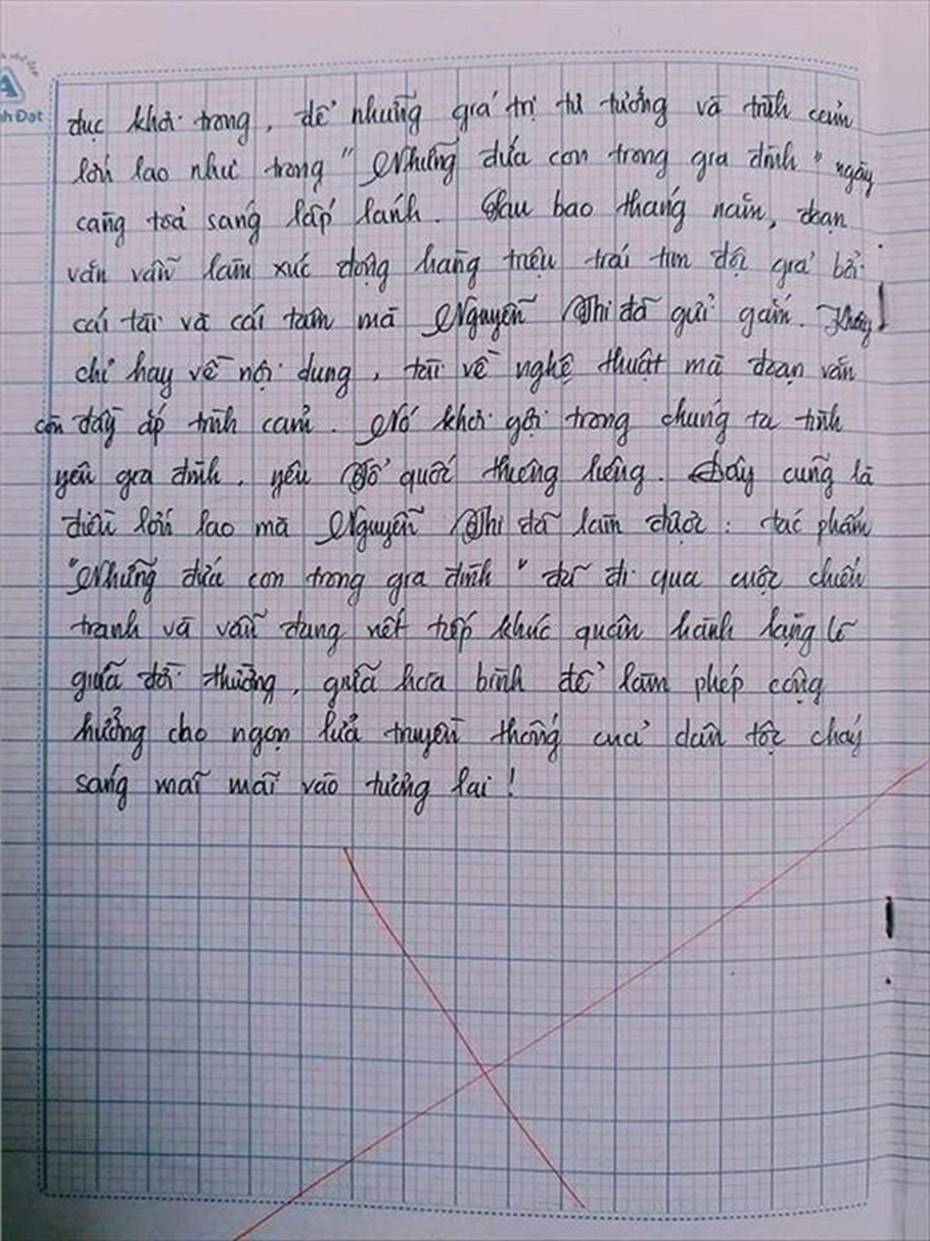 nh Đạt
đục khơi trong, để những giá trị tư tưởng và tình cảm
lớn lao như trong "Những đứa con trong gia đình" ngày
càng toả sáng lấp lánh. Sau bao tháng năm, đoạn
văn vẫn làm xúc động hàng triệu trái tim độc giả bởi
cái tài và cái tâm mà Nguyễn Thi đã gửi gắm. Không
chỉ hay về nội dung, tài về nghệ thuật mà đoạn văn
còn đầy ắp tình cảm. Nó khơi gợi trong chúng ta tình
yêu gia đình, yêu Tổ quốc thương liêng. Đây cũng là
điều lớn lao mà Nguyễn Thi đã làm được: tác phẩm
"Những đứa con trong gia đình" đã đi qua cuộc chiến
tranh và vẫn đang nối tiếp khúc quân hành lặng lẽ
giữa đời thường, giữa hòa bình để làm phép cộng
hưởng cho ngọn lửa truyền thống của dân tộc cháy
sáng mãi mãi vào tương lai!